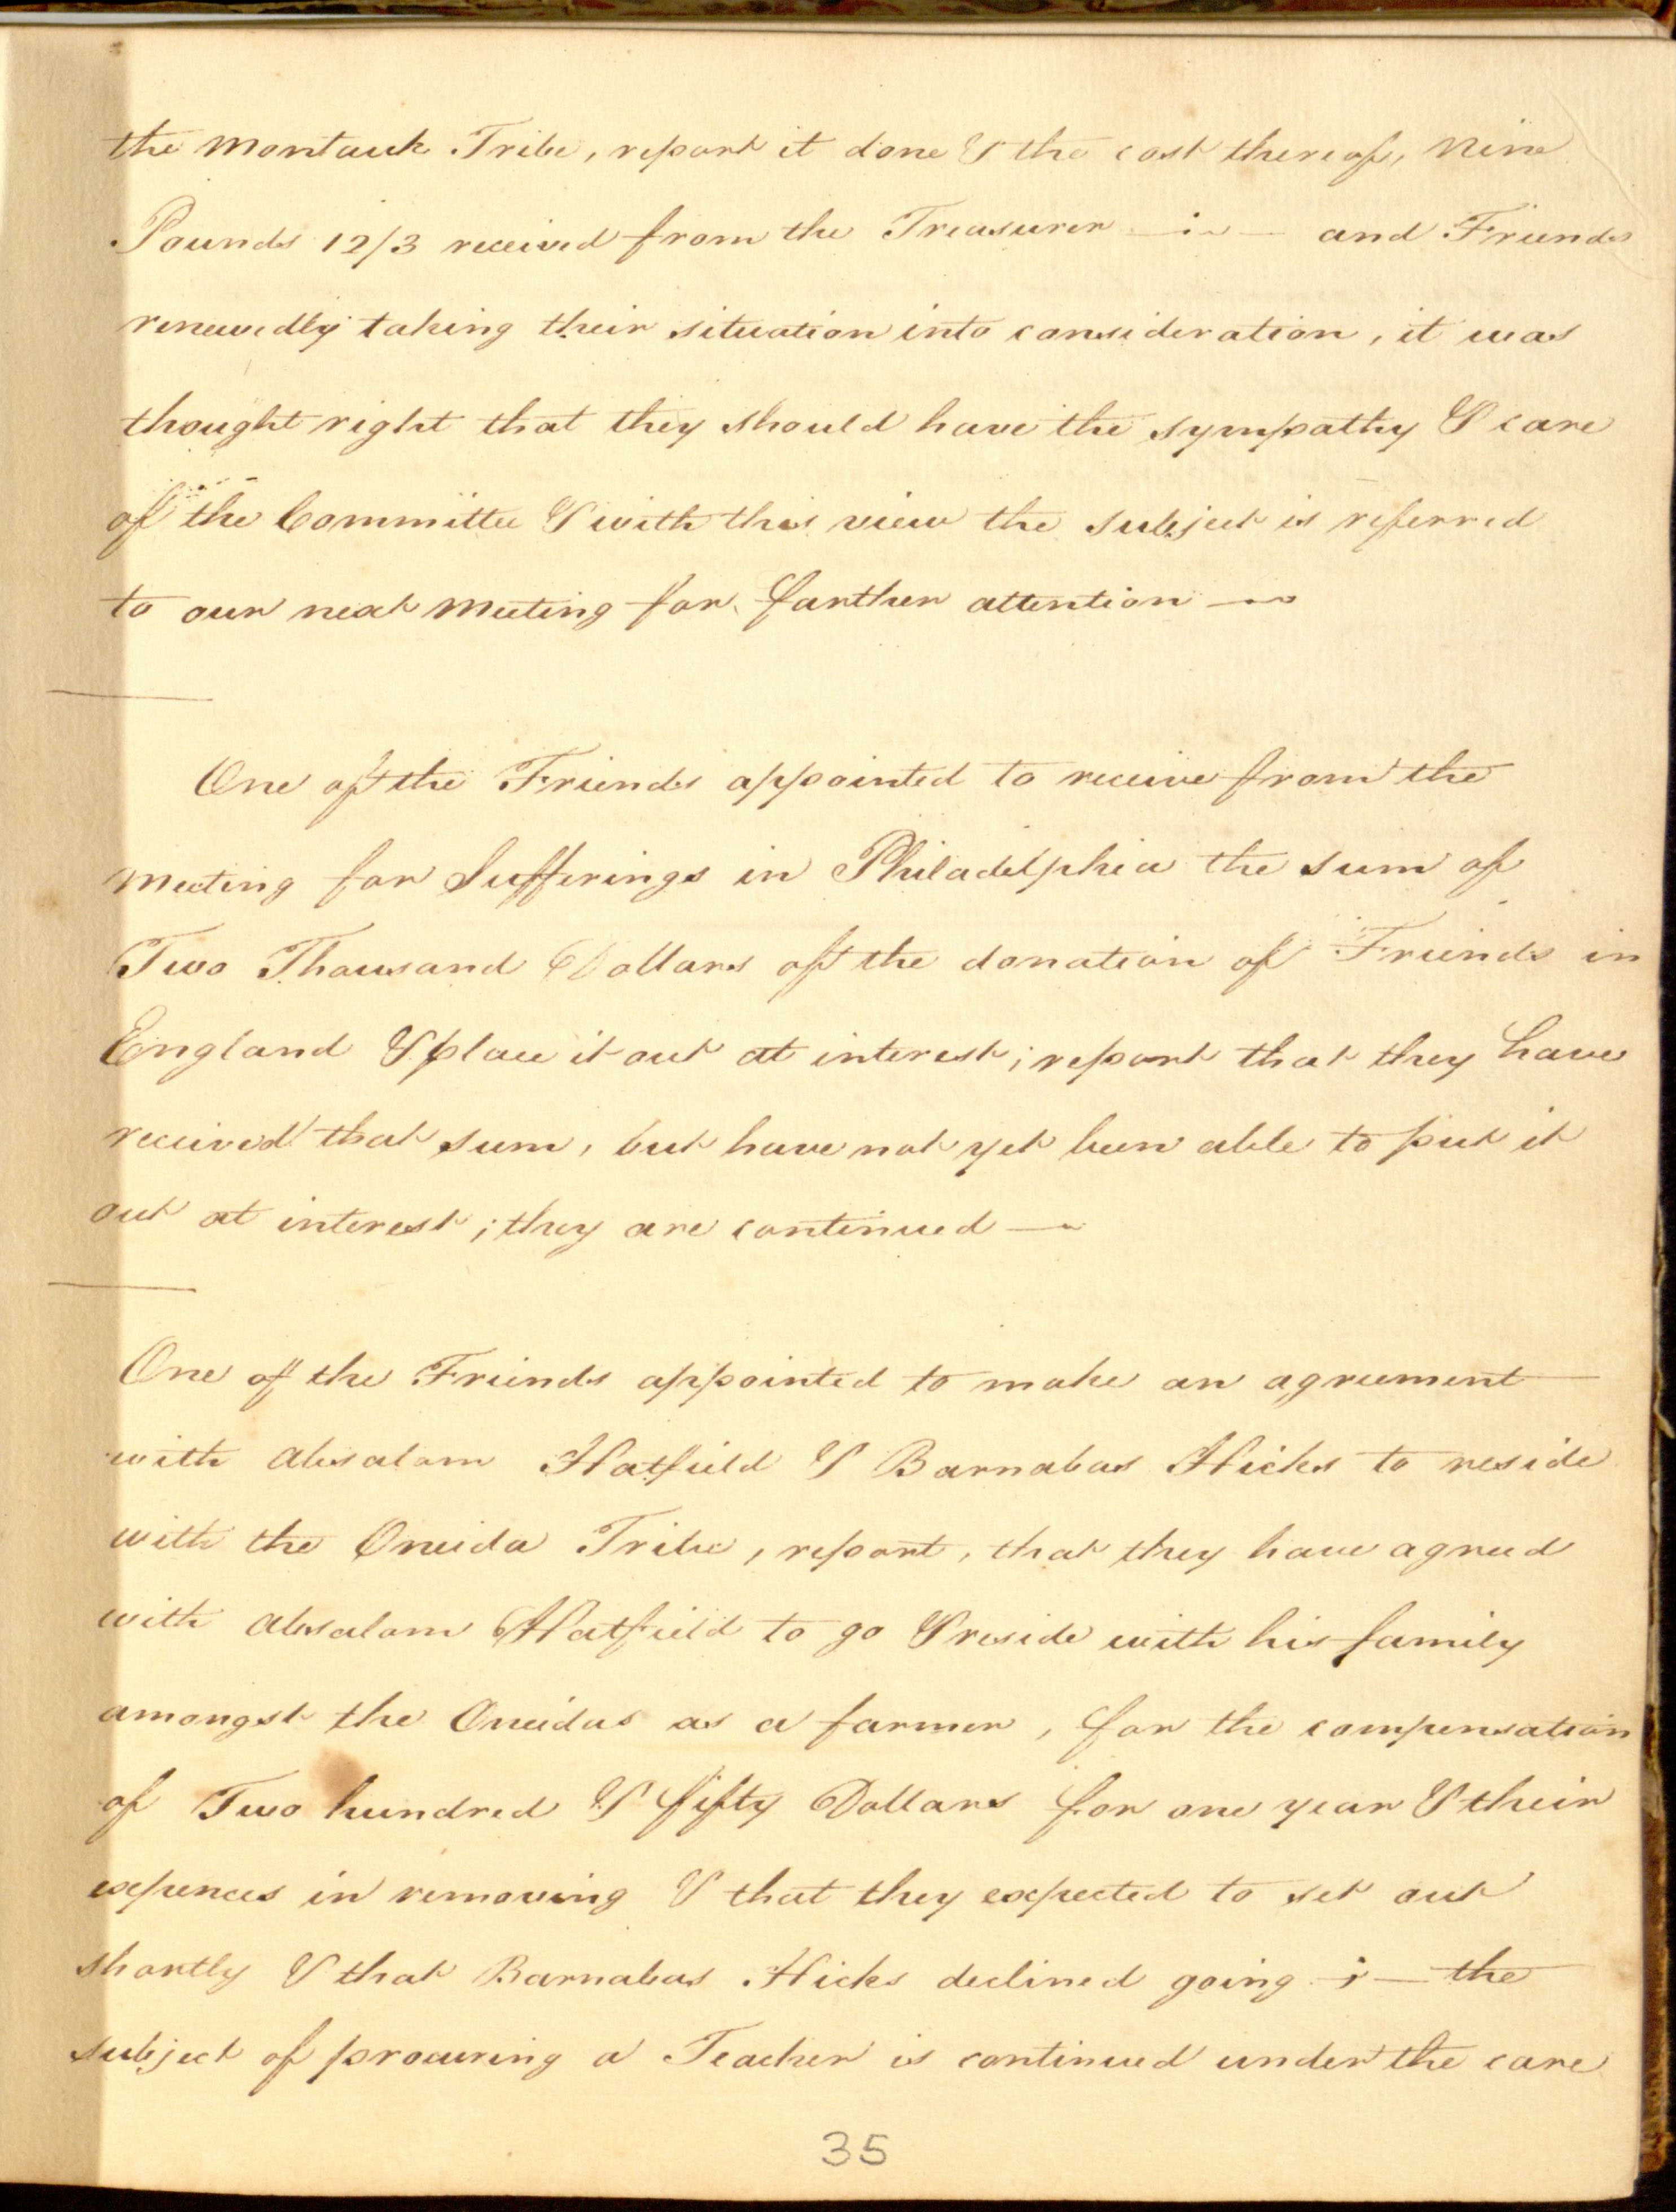 the Montauk Tribe, report it done & the cost thereof, Nine
Pounds 12/3 received from the Treasurer — ; — and Friends
renewedly taking their situation into consideration, it was
thought right that they should have the sympathy & care
of the Committee & with this view the subject is referred
to our next meeting for farther attention —
One of the Friends appointed to receive from the
meeting for Sufferings in Philadelphia the sum of
Two Thousand Dollars of the donation of Friends in
England & place it out at interest; report that they have
received that sum, but have not yet been able to put it
out at interest; they are continued —
One of the Friends appointed to make an agreement
with Absalom Hatfield & Barnabas Hicks to reside
with the Oneida Tribe, report, that they have agreed
with Absalom Hatfield to go & reside with his family
amongst the Oneidas as a farmer, for the compensation
of Two hundred & fifty Dollars for one year & their
expences in removing & that they expected to set out
shortly & that Barnabas Hicks declined going ; — the
subject of procuring a Teacher is continued under the care
35